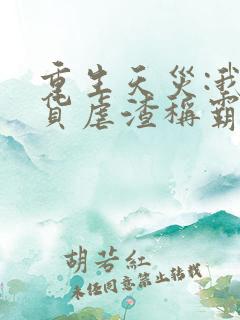 重生天災:我
貨虐渣稱霸
胡若紅
未經同意禁止轉載